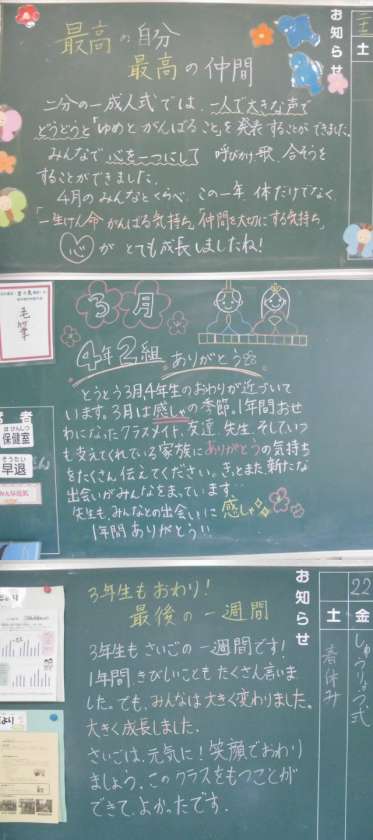 最高の自分
最高の仲間
お知らせ
土
二分の一成人式では、一人で大きな声で
どうどうと「ゆめとがんばること」を発表することができました。
みんなで心を一つにして 呼びかけ、歌、合そうを
することができました。
4月のみんなとくらべ、この一年、体だけでなく、
「一生けん命がんばる気持ち、仲間を大切にする気持ち」
心がとても成長しましたね!
毛筆
3月
4年2組 ありがとう
とうとう3月、4年生のおわりが近づいて
います。3月は感しゃの季節。1年間おせ
わになったクラスメイト、友達、先生、そしていつ
も支えてくれている家族にありがとうの気持ち
をたくさん伝えてください。きっとまた、新たな
出会いがみんなをまっています…
先生も、みんなとの出会いに感しゃ
1年間ありがとう!!
者
ほけんしつ
保健室
そうたい
早退
3年生もおわり!
最後の一週間
お知らせ
22
土 金
しゅうりょう式
春休み
3年生もさいごの一週間です!
1年間、きびしいこともたくさん言いま
した。でも、みんなは大きく変わりました。
大きく成長しました。
さいごは、元気に!笑顔でおわり
ましょう。このクラスをもつことが
できて、よかったです。